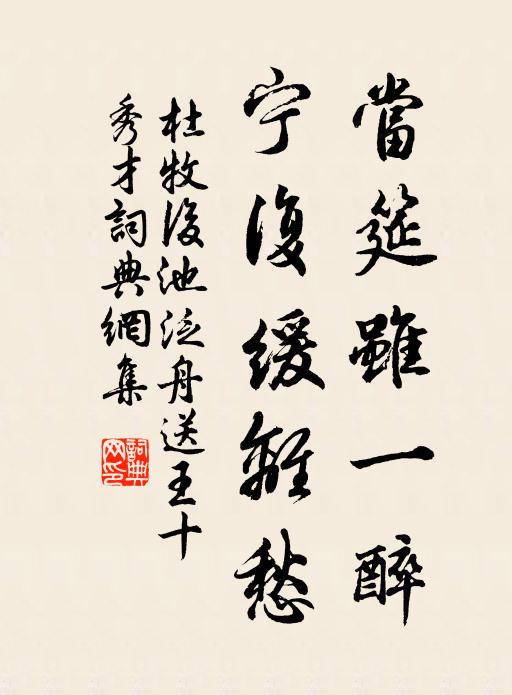 當筵雖一醉
宁復缓離愁
杜牧後池泛舟送王十
秀才詞典網集
詞典网印